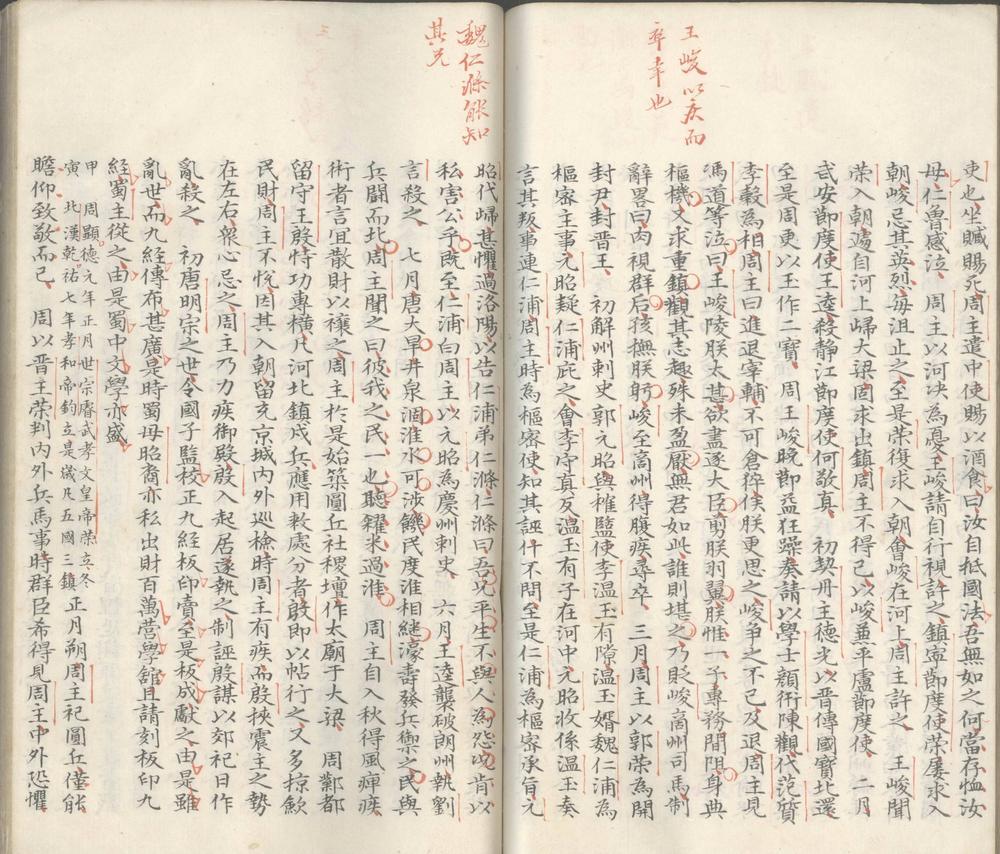 王峻以疾而
卒幸也
吏也坐贓賜死周主遣中使賜以酒食曰汝自抵國法吾無如之何當存恤汝
母仁魯感泣　周主以河决為憂王峻請自行視許之鎮寧節度使荣屢求入
朝峻忌其英烈每沮止之至是荣復求入朝會峻在河上周主許之　王峻聞
荣入朝遽自河上歸大梁固求出鎮周主不得已以峻兼平盧節度使　二月
武安節度使王逵殺静江節度使何敬真　初契丹主德光以晋傳國寶北還
至是周更以玉作二寶　周王峻晚節益狂躁奏請以學士顔衎陳觀代范質
李穀為相周主曰進退宰輔不可倉猝俟朕更思之峻争之不已及退周主見
馮道等泣曰王峻陵朕太甚欲盡逐大臣剪朕羽翼朕惟一子專務間阻身典
樞機又求重鎮觀其志趣殊未盈厭無君如此誰則堪之乃貶峻商州司馬制
辭畧曰肉視群后孩撫朕躬峻至商州得腹疾尋卒　三月周主以郭荣為開
封尹封晋王　初解州刺史郭元昭與榷監使李温玉有隙温玉婿魏仁浦為
樞密主事元昭疑仁浦庇之會李守真反温玉有子在河中元昭收係温玉奏
言其叛事連仁浦周主時為樞密使知其誣仵不問至是仁浦為樞密承旨元
魏仁滌能知
其兄
昭代歸甚懼過洛陽以告仁浦弟仁滌仁滌曰吾兄平生不與人為怨况肯以
私害公乎既至仁浦白周主以元昭為慶州刺史　六月王逵襲破朗州執劉
言殺之　七月唐大旱井泉涸淮水可涉饑民度淮相継濠壽發兵禦之民與
兵鬪而北周主聞之曰彼我之民一也聽糴米過淮　周主自入秋得風痺疾
術者言宜散財以禳之周主於是始築圓丘社稷壇作太廟于大梁　周鄴都
留守王殷恃功專横凡河北鎮戍兵應用敕處分者殷即以帖行之又多掠歛
民財周主不悦因其入朝留充京城内外巡檢時周主有疾而殷挾震主之勢
在左右衆心忌之周主乃力疾御殿殷入起居遂執之制誣殷謀以郊祀日作
亂殺之　初唐明宗之世令國子監校正九經板印賣至是板成獻之由是雖
亂世而九經傳布甚廣是時蜀毋昭裔亦私出財百萬营學舘且請刻板印九
經蜀主從之由是蜀中文學亦盛
甲寅
周顯德元年正月世宗睿武孝文皇帝荣立冬
北漢乾祐七年孝和帝鈞立是歲凡五國三鎮
正月朔周主祀圓丘僅能
瞻仰致敬而已　周以晋王荣判内外兵馬事時群臣希得見周主中外恐懼